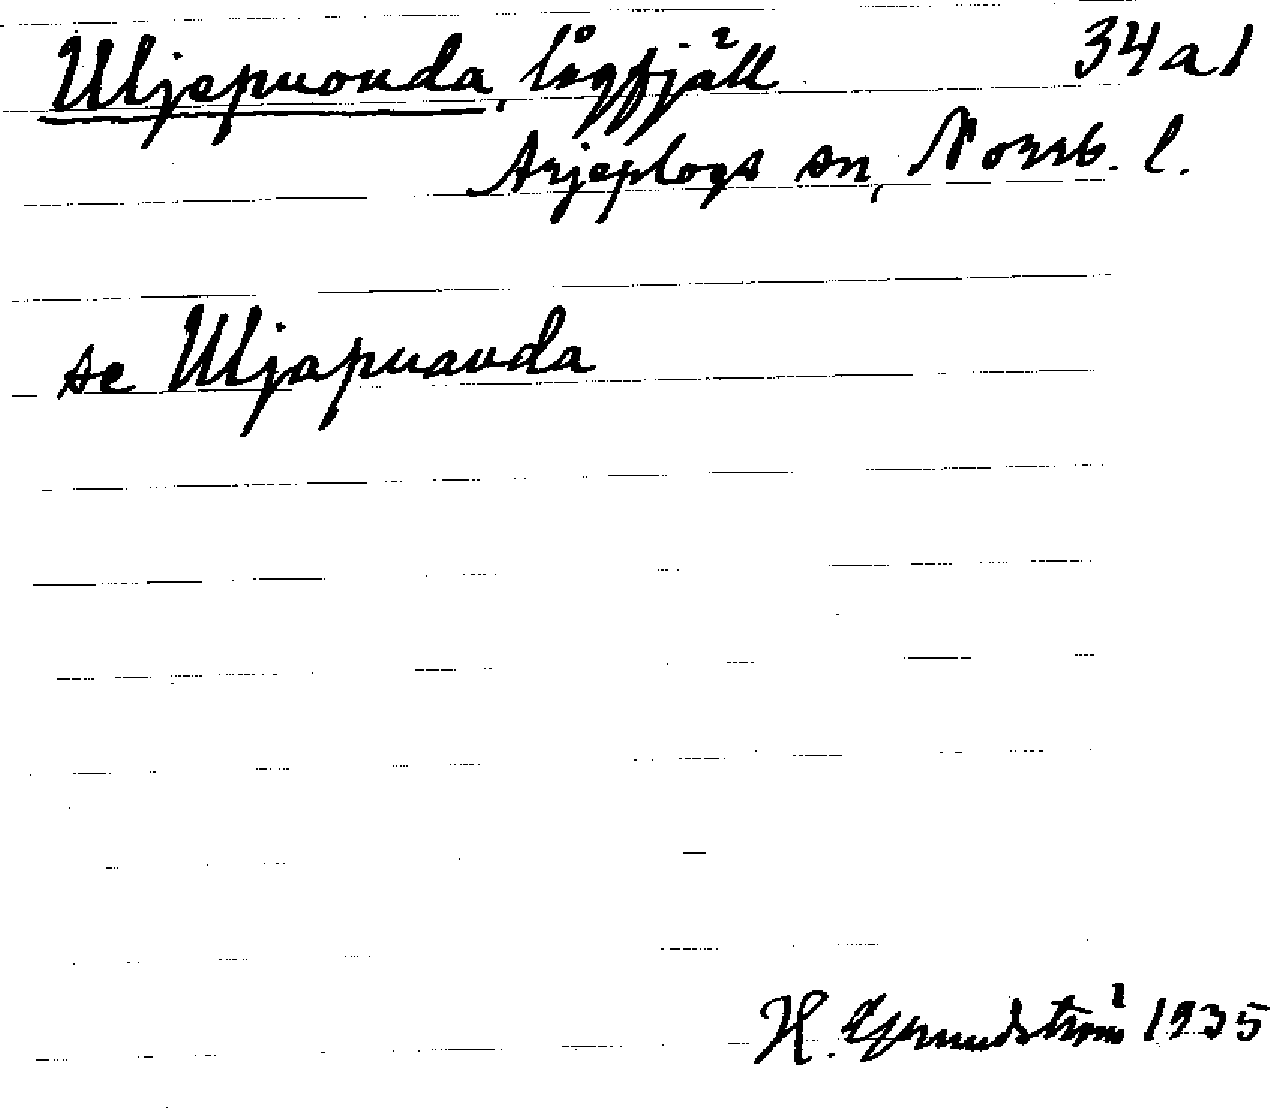 Uljepuouda, lågfjäll 34a1
Arjeplogs sn, Norrb. l.
se Uljapuauda
H. Grundström 1935